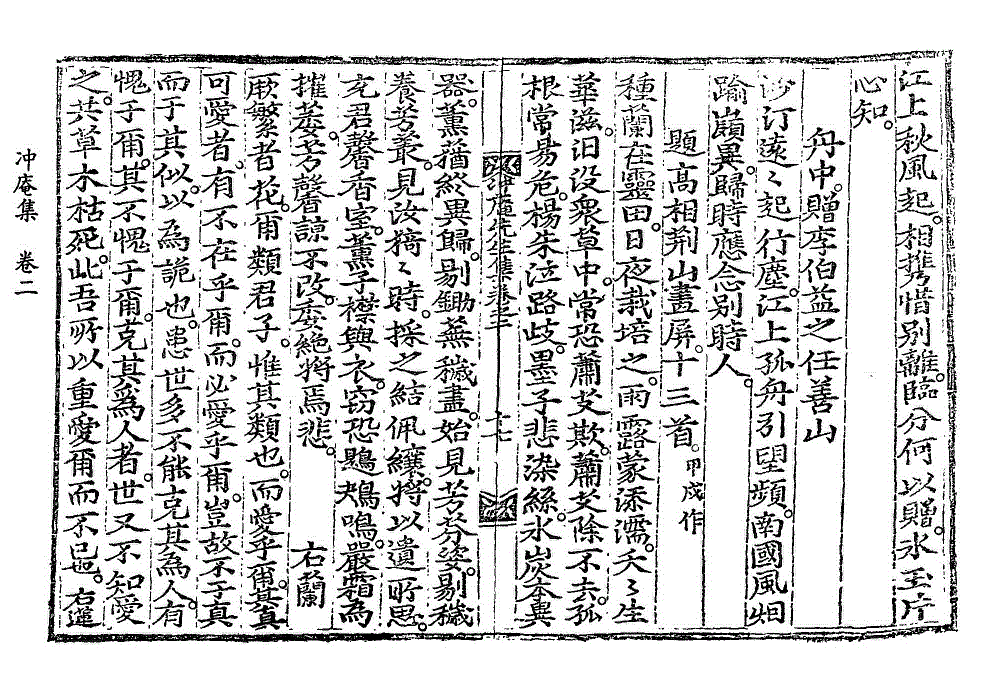 江上秋風起。相携惜別離。臨分何以贈。氷玉片
心知。
舟中。贈李伯益之任善山
沙汀遠〻起行塵。江上孤舟引望頻。南國風烟
踰嶺異。歸時應念別時人。
題高相荆山畫屏。十三首。甲戌作
種蘭在靈田。日夜栽培之。雨露蒙添濡。夭〻生
華滋。汩没衆草中。常恐蕭艾欺。蕭艾除不去。孤
根常易危。楊朱泣路歧。墨子悲染絲。氷炭本異
冲庵先生集卷之二 十七
器。薰蕕終異歸。剔鋤蕪穢盡。始見芳芬姿。剔穢
養芳叢。見汝猗〻時。採之結佩纕。將以遺所思。
充君馨香室。薰子襟與衣。窃恐鶗鴂鳴。嚴霜為
摧萎。芳馨諒不改。委絶將焉悲。 右蘭
厥繁者花。爾類君子。惟其類也。而愛乎爾。其真
可愛者。有不在乎爾。而必愛乎爾。豈故不于真
而于其似。以為詭也。患世多不能克其為人。有
愧于爾。其不愧于爾。克其為人者。世又不知愛
之。共草木枯死。此吾所以重愛爾而不已也。右蓮
冲庵集 卷二